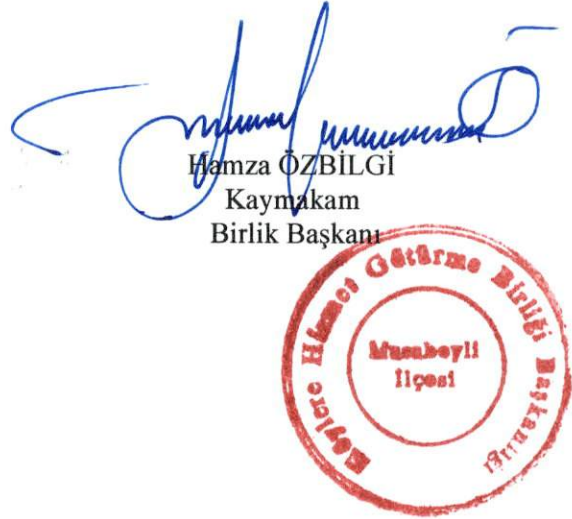 Hamza ÖZBİLGİ
Kaymakam
Birlik Başkanı
Köylere Hizmet Götürme Birliği Başkanlığı
Musabeyli
İlçesi